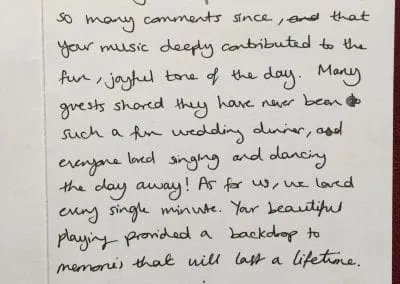 so many comments since, and that
your music deeply contributed to the
fun, joyful tone of the day. Many
guests shared they have never been to
such a fun wedding dinner, and
everyone loved singing and dancing
the day away! As for us, we loved
every single minute. Your beautiful
playing provided a backdrop to
memories that will last a lifetime.